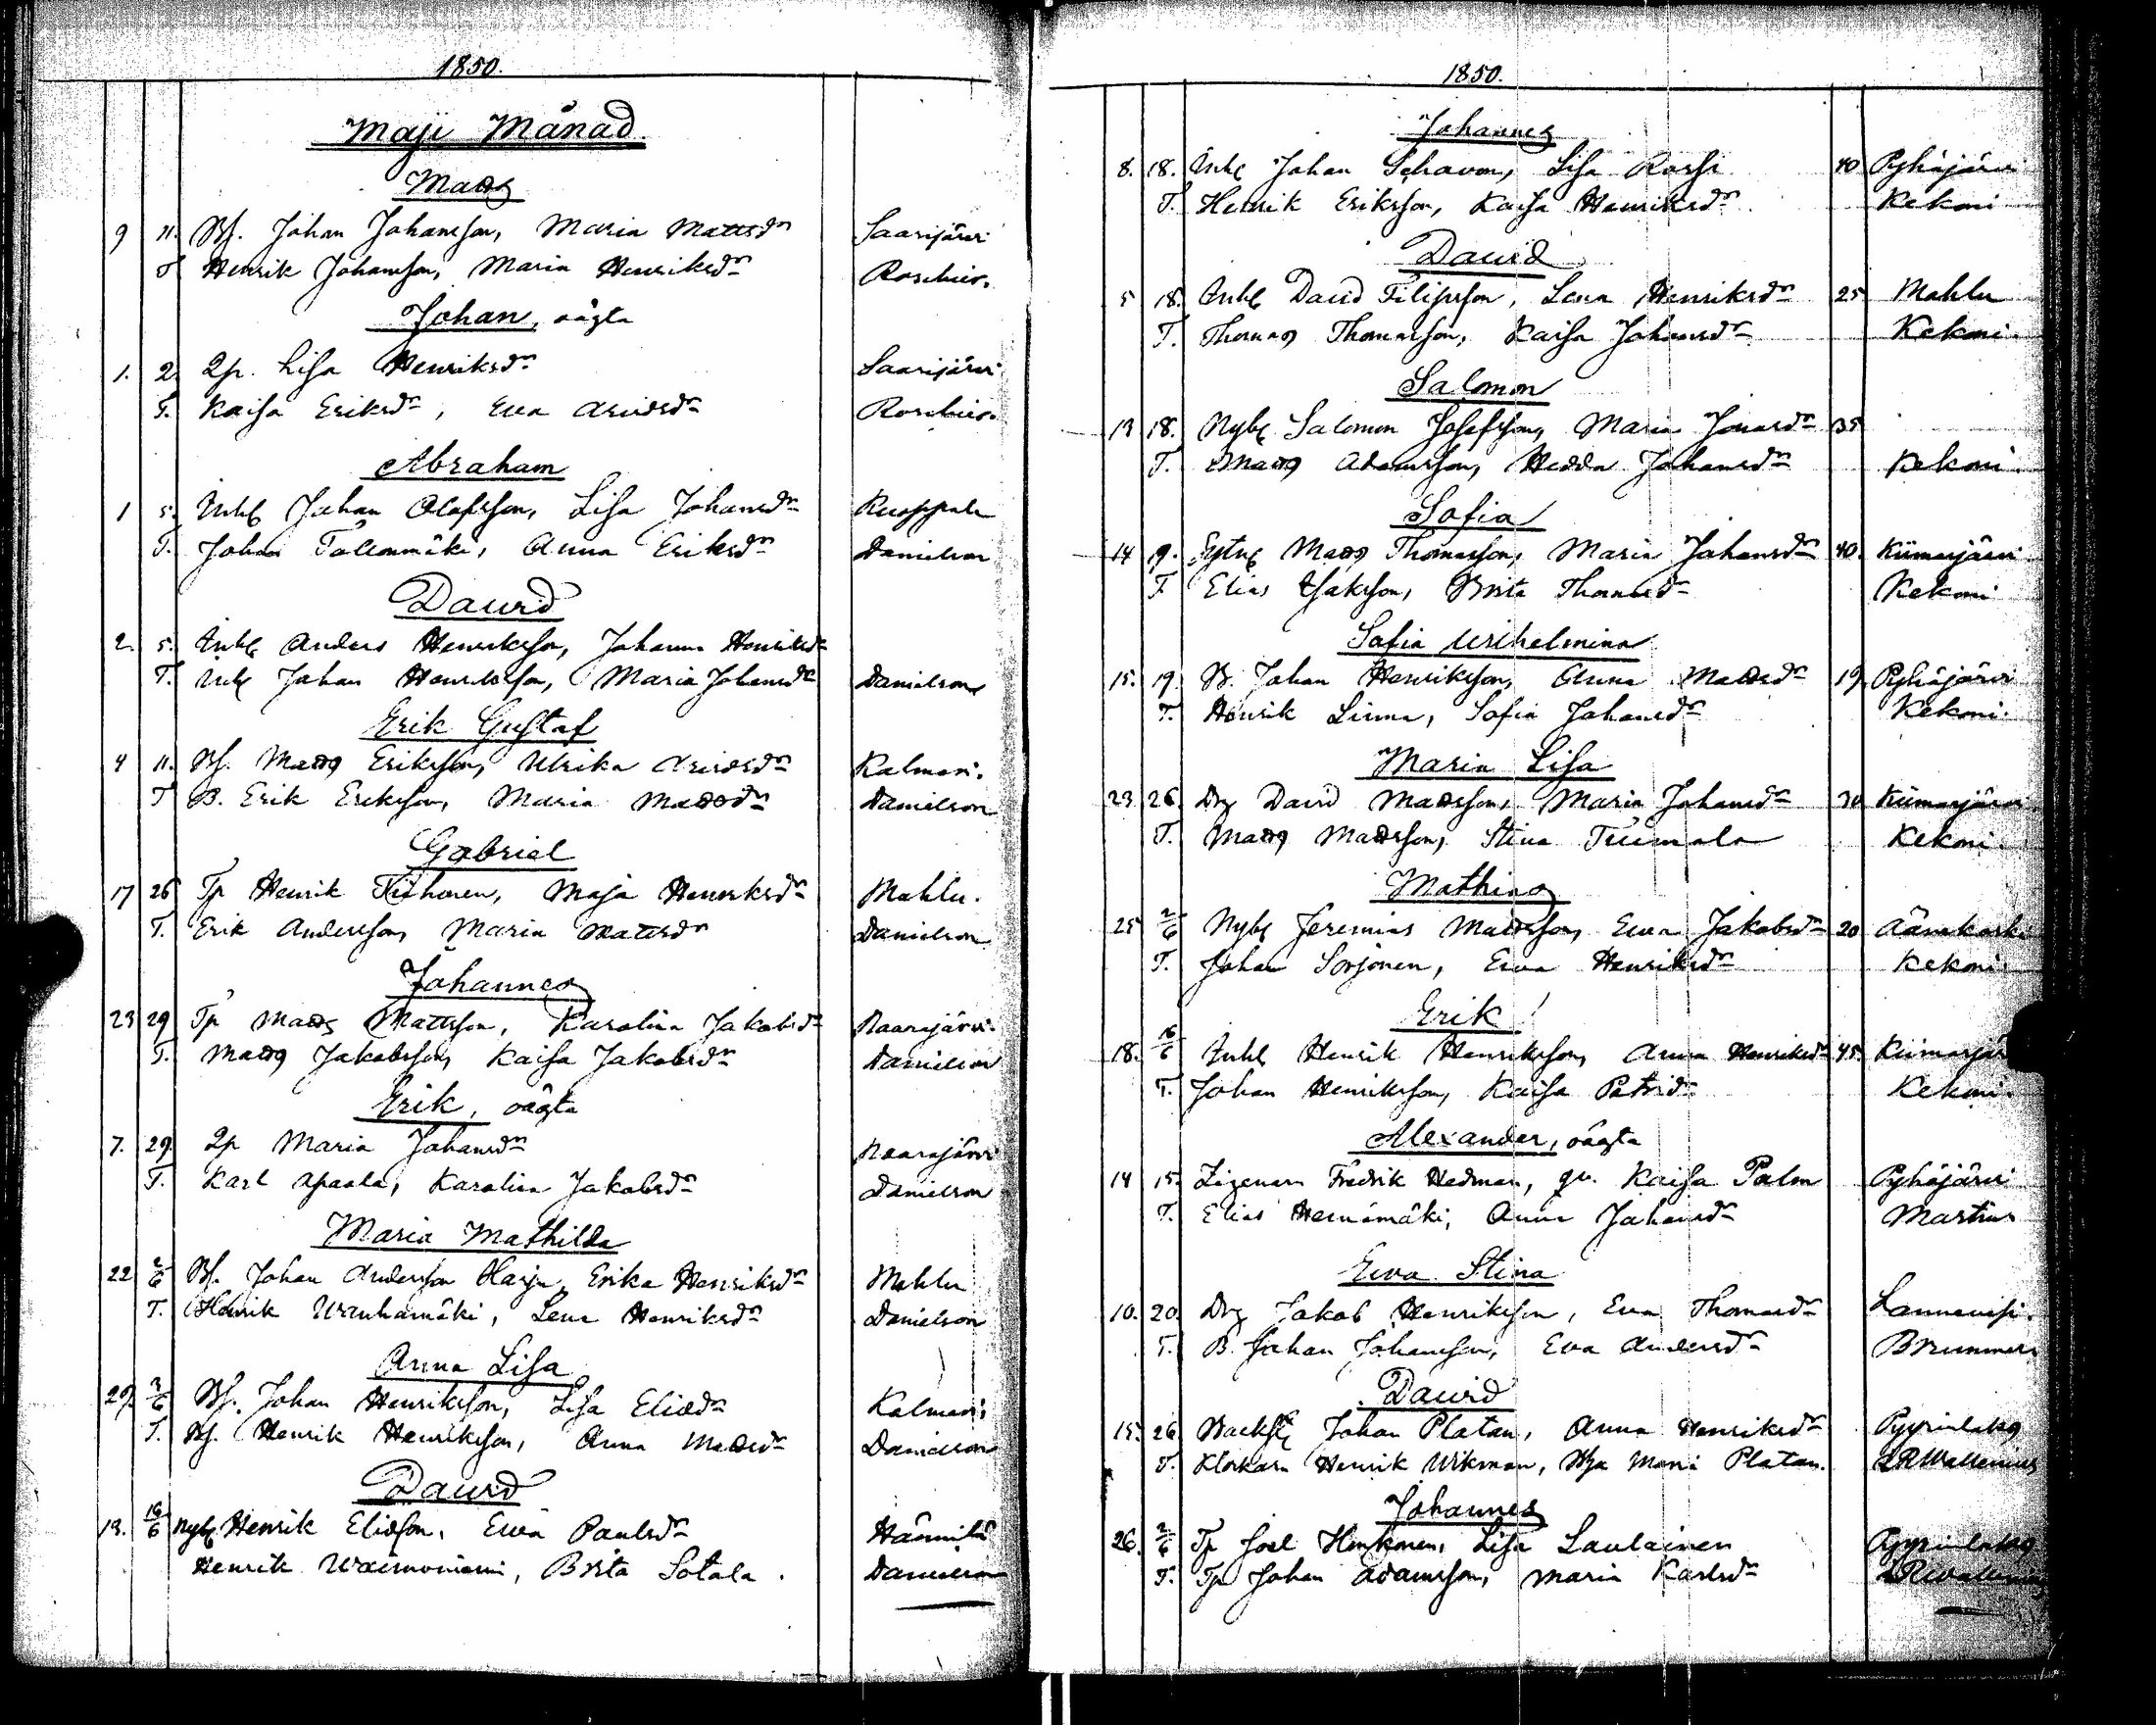 1850.
Maji Månad
Matts
9 11. Bf. Johan Johansson, Maria Mattsdr Saarijärvi
T Henrik Johansson, Maria Henriksdr
Johan, oägta
1. 2. Qp. Lisa Henriksdr Saarijärvi
T. Kaisa Eriksdr, Eva Arvidsdr
Abraham
1 5. Inhs Johan Olofsson, Lisa Johansdr
T. Johan Anna Eriksdr Danielson
David
2. 5. Inhs Anders Henriksson, Johanna Henriksdr
T. Inhs Johan Henriksson, Maria Johansdr Danielson
Erik Gustaf
4 11. Bf. Matts Eriksson, Ulrika Arvidsdr Kalmari.
T B. Erik Eriksson, Maria Mattsdr Danielson
Gabriel
17 26 Tp Henrik Tiihonen, Maja Henriksdr Mahlu.
T. Erik Andersson, Maria Mattsdr Danielson
Johannes
23 29 Tp Matts Mattsson, Karolina Jakobsdr Naarajärvi.
T. Matts Jakobsson, Kaisa Jakobsdr Danielson
Erik, oägta
7. 29. Qp Maria Johansdr Naarajärvi
T. Karl Apaala, Karolina Jakobsdr Danielson
Maria Mathilda
22 2/6 Bf. Johan Andersson Harju, Erika Henriksdr Mahlu
T. Henrik Lena Henriksdr Danielson
Anna Lisa
29. 3/6 Bf. Johan Henriksson, Lisa Eliædr Kalmari
T. Bf. Henrik Henriksson, Anna Mattsdr Danielson
David
13. 16/6 Nybs Henrik Eliæson, Eva Paulsdr Hännilä
Henrik Brita Sotala. Danielson
1850.
Johannes
8. 18. Inhs Johan Lisa Rossi 40 Pyhäjärvi
T. Henrik Eriksson, Kaisa Henriksdr Kekoni
David
5 18. Inhs David Filipsson, Lena Henriksdr 25 Mahlu
T. Thomas Thomasson, Kaisa Johansdr Kekoni.
Salomon
13 18. Nybs Salomon Josefsson, Maria Jonasdr 35
T. Matts Adamsson, Hedda Johansdr Kekoni.
Sofia
14 19. Sytns Matts Thomasson, Maria Johansdr 40. Kiimasjärvi
T Elias Isaksson, Brita Thomasdr Kekoni
Sofia Wilhelmina
15. 19. B. Johan Henriksson, Anna Mattsdr 19. Pyhäjärvi
T. Henrik Linna, Sofia Johansdr Kekoni.
Maria Lisa
23 26. Drg David Mattsson, Maria Johansdr 30 Kiimasjärvi
T. Matts Mattsson, Stina Tuimala Kekoni.
Mathias
25 2/6 Nybs Jeremias Mattsson, Ewa Jakobsdr 20 Äänekoski
T. Johan Sorjonen, Ewa Henriksdr Kekoni.
Erik
18. 16/6 Inhs Henrik Henriksson, Anna Henriksdr 45. Kiimasjär
T. Johan Henriksson, Kaisa Petrisdr Kekoni.
Alexander, oägta
14 15. Zigenarn Fredrik Hedman, qv. Kaisa Palm Pyhäjärvi
T. Elias Heinämäki, Anna Johansdr Martins
Ewa Stina
10. 20. Drg Jakob Henriksson, Eva Thomasdr Lannevesi.
T. B. Johan Johansson, Eva Andersdr Brummer
David
15. 26 Johan Platan, Anna Henriksdr Pyyrinlaks
T. Klockarn Henrik Wikman, Maria Platan. Wallenius
Johannes
26. 2/6 Tp Joel Honkonen, Lisa Laulainen Pyyrinlaks
T. Tp Johan Adamsson, Maria Karlsdr Wallenius